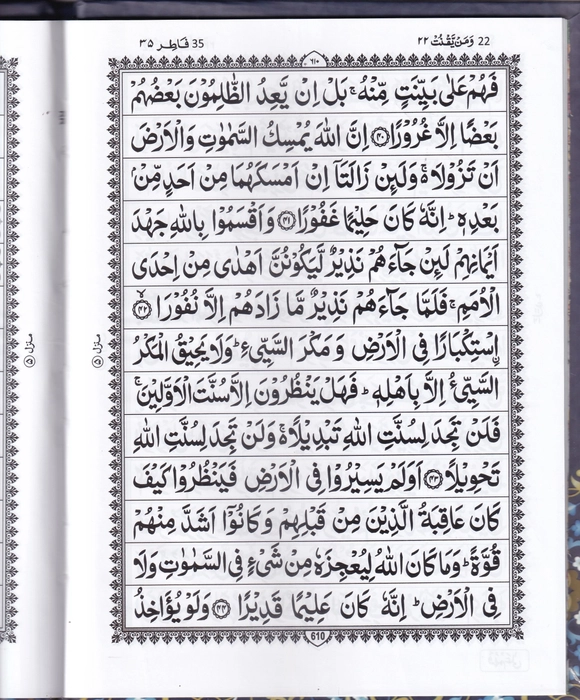 22 وَمَنْ يَّقْنُتْ ٢٢
35 فَاطِر ٣٥
٦١٠
فَهُمْ عَلٰى بَيِّنَتٍ مِّنْهُ ۚ بَلْ اِنْ يَّعِدُ الظّٰلِمُوْنَ بَعْضُهُمْ
بَعْضًا اِلَّا غُرُوْرًا ﴿٤٠﴾ اِنَّ اللّٰهَ يُمْسِكُ السَّمٰوٰتِ وَالْاَرْضَ
اَنْ تَزُوْلَا ۚ۬ وَلَئِنْ زَالَتَاۤ اِنْ اَمْسَكَهُمَا مِنْ اَحَدٍ مِّنْۢ
بَعْدِهٖ ؕ اِنَّهٗ كَانَ حَلِيْمًا غَفُوْرًا ﴿٤١﴾ وَاَقْسَمُوْا بِاللّٰهِ جَهْدَ
اَيْمَانِهِمْ لَئِنْ جَآءَهُمْ نَذِيْرٌ لَّيَكُوْنُنَّ اَهْدٰى مِنْ اِحْدَى
الْاُمَمِ ۚ فَلَمَّا جَآءَهُمْ نَذِيْرٌ مَّا زَادَهُمْ اِلَّا نُفُوْرًا ﴿٤٢﴾ ۙ
اسْتِكْبَارًا فِى الْاَرْضِ وَمَكْرَ السَّيِّئِ ؕ وَلَا يَحِيْقُ الْمَكْرُ
السَّيِّئُ اِلَّا بِاَهْلِهٖ ؕ فَهَلْ يَنْظُرُوْنَ اِلَّا سُنَّتَ الْاَوَّلِيْنَ ۚ
فَلَنْ تَجِدَ لِسُنَّتِ اللّٰهِ تَبْدِيْلًا ۚ۬ وَلَنْ تَجِدَ لِسُنَّتِ اللّٰهِ
تَحْوِيْلًا ﴿٤٣﴾ اَوَلَمْ يَسِيْرُوْا فِى الْاَرْضِ فَيَنْظُرُوْا كَيْفَ
كَانَ عَاقِبَةُ الَّذِيْنَ مِنْ قَبْلِهِمْ وَكَانُوْۤا اَشَدَّ مِنْهُمْ
قُوَّةً ؕ وَمَا كَانَ اللّٰهُ لِيُعْجِزَهٗ مِنْ شَىْءٍ فِى السَّمٰوٰتِ وَلَا
فِى الْاَرْضِ ؕ اِنَّهٗ كَانَ عَلِيْمًا قَدِيْرًا ﴿٤٤﴾ وَلَوْ يُؤَاخِذُ
610
منزل ⑤
منزل ⑤